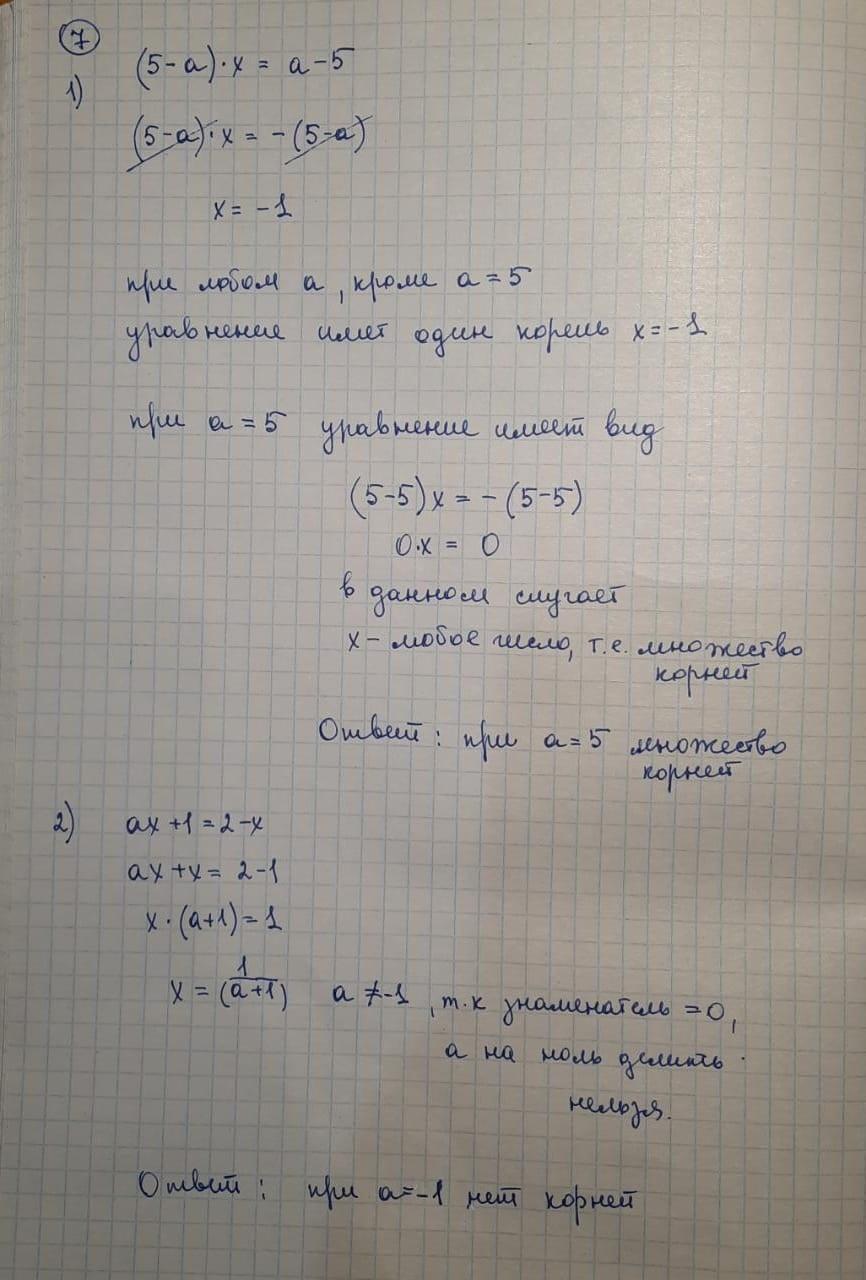 7
1) (5-a)·x = a-5
(5-a)·x = -(5-a)
x = -1
при любом a, кроме a=5
уравнение имет один корень x=-1
при a=5 уравнение имеет вид
(5-5)x = -(5-5)
0·x = 0
в данном случает
x - любое число, т.е. множество
корней
Ответ: при a=5 множество
корней
2) ax+1=2-x
ax+x= 2-1
x·(a+1)=1
x = 1/(a+1) a≠-1, т.к знаменатель =0,
а на ноль делить
нельзя.
Ответ: при a=-1 нет корней